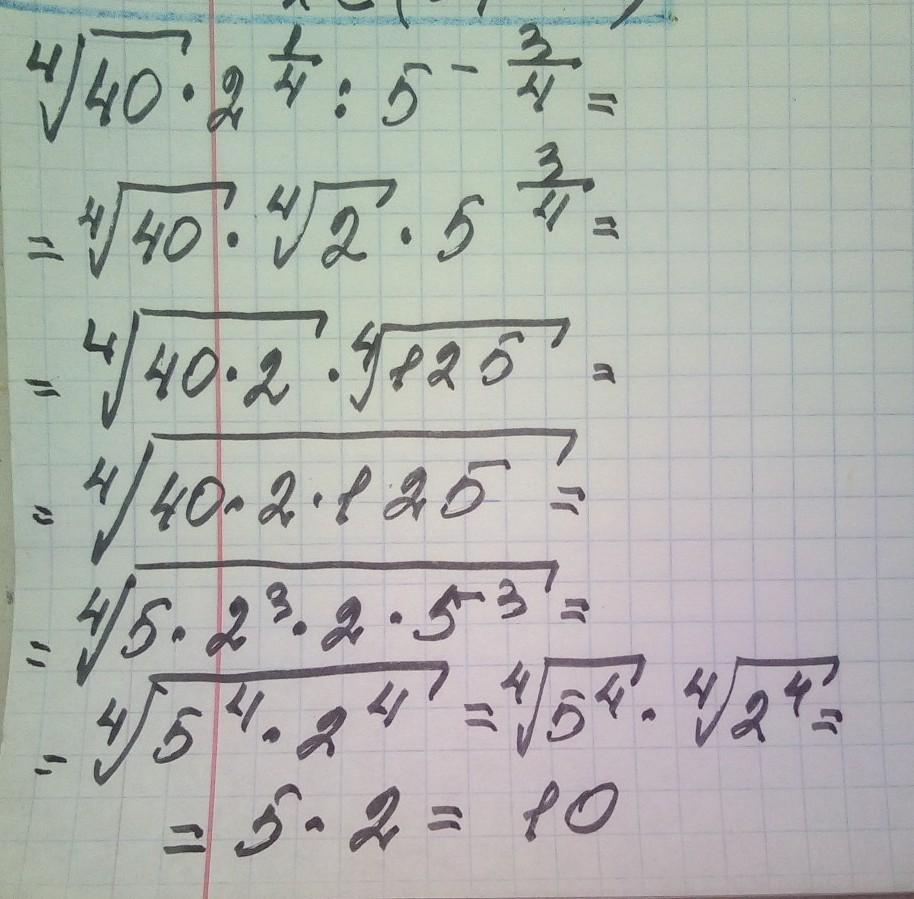 ⁴√40 · 2^(1/4) : 5^(-3/4) =
= ⁴√40 · ⁴√2 · 5^(3/4) =
= ⁴√(40·2) · ⁴√125 =
= ⁴√(40·2·125) =
= ⁴√(5·2³·2·5³) =
= ⁴√(5⁴·2⁴) = ⁴√5⁴ · ⁴√2⁴ =
= 5·2 = 10